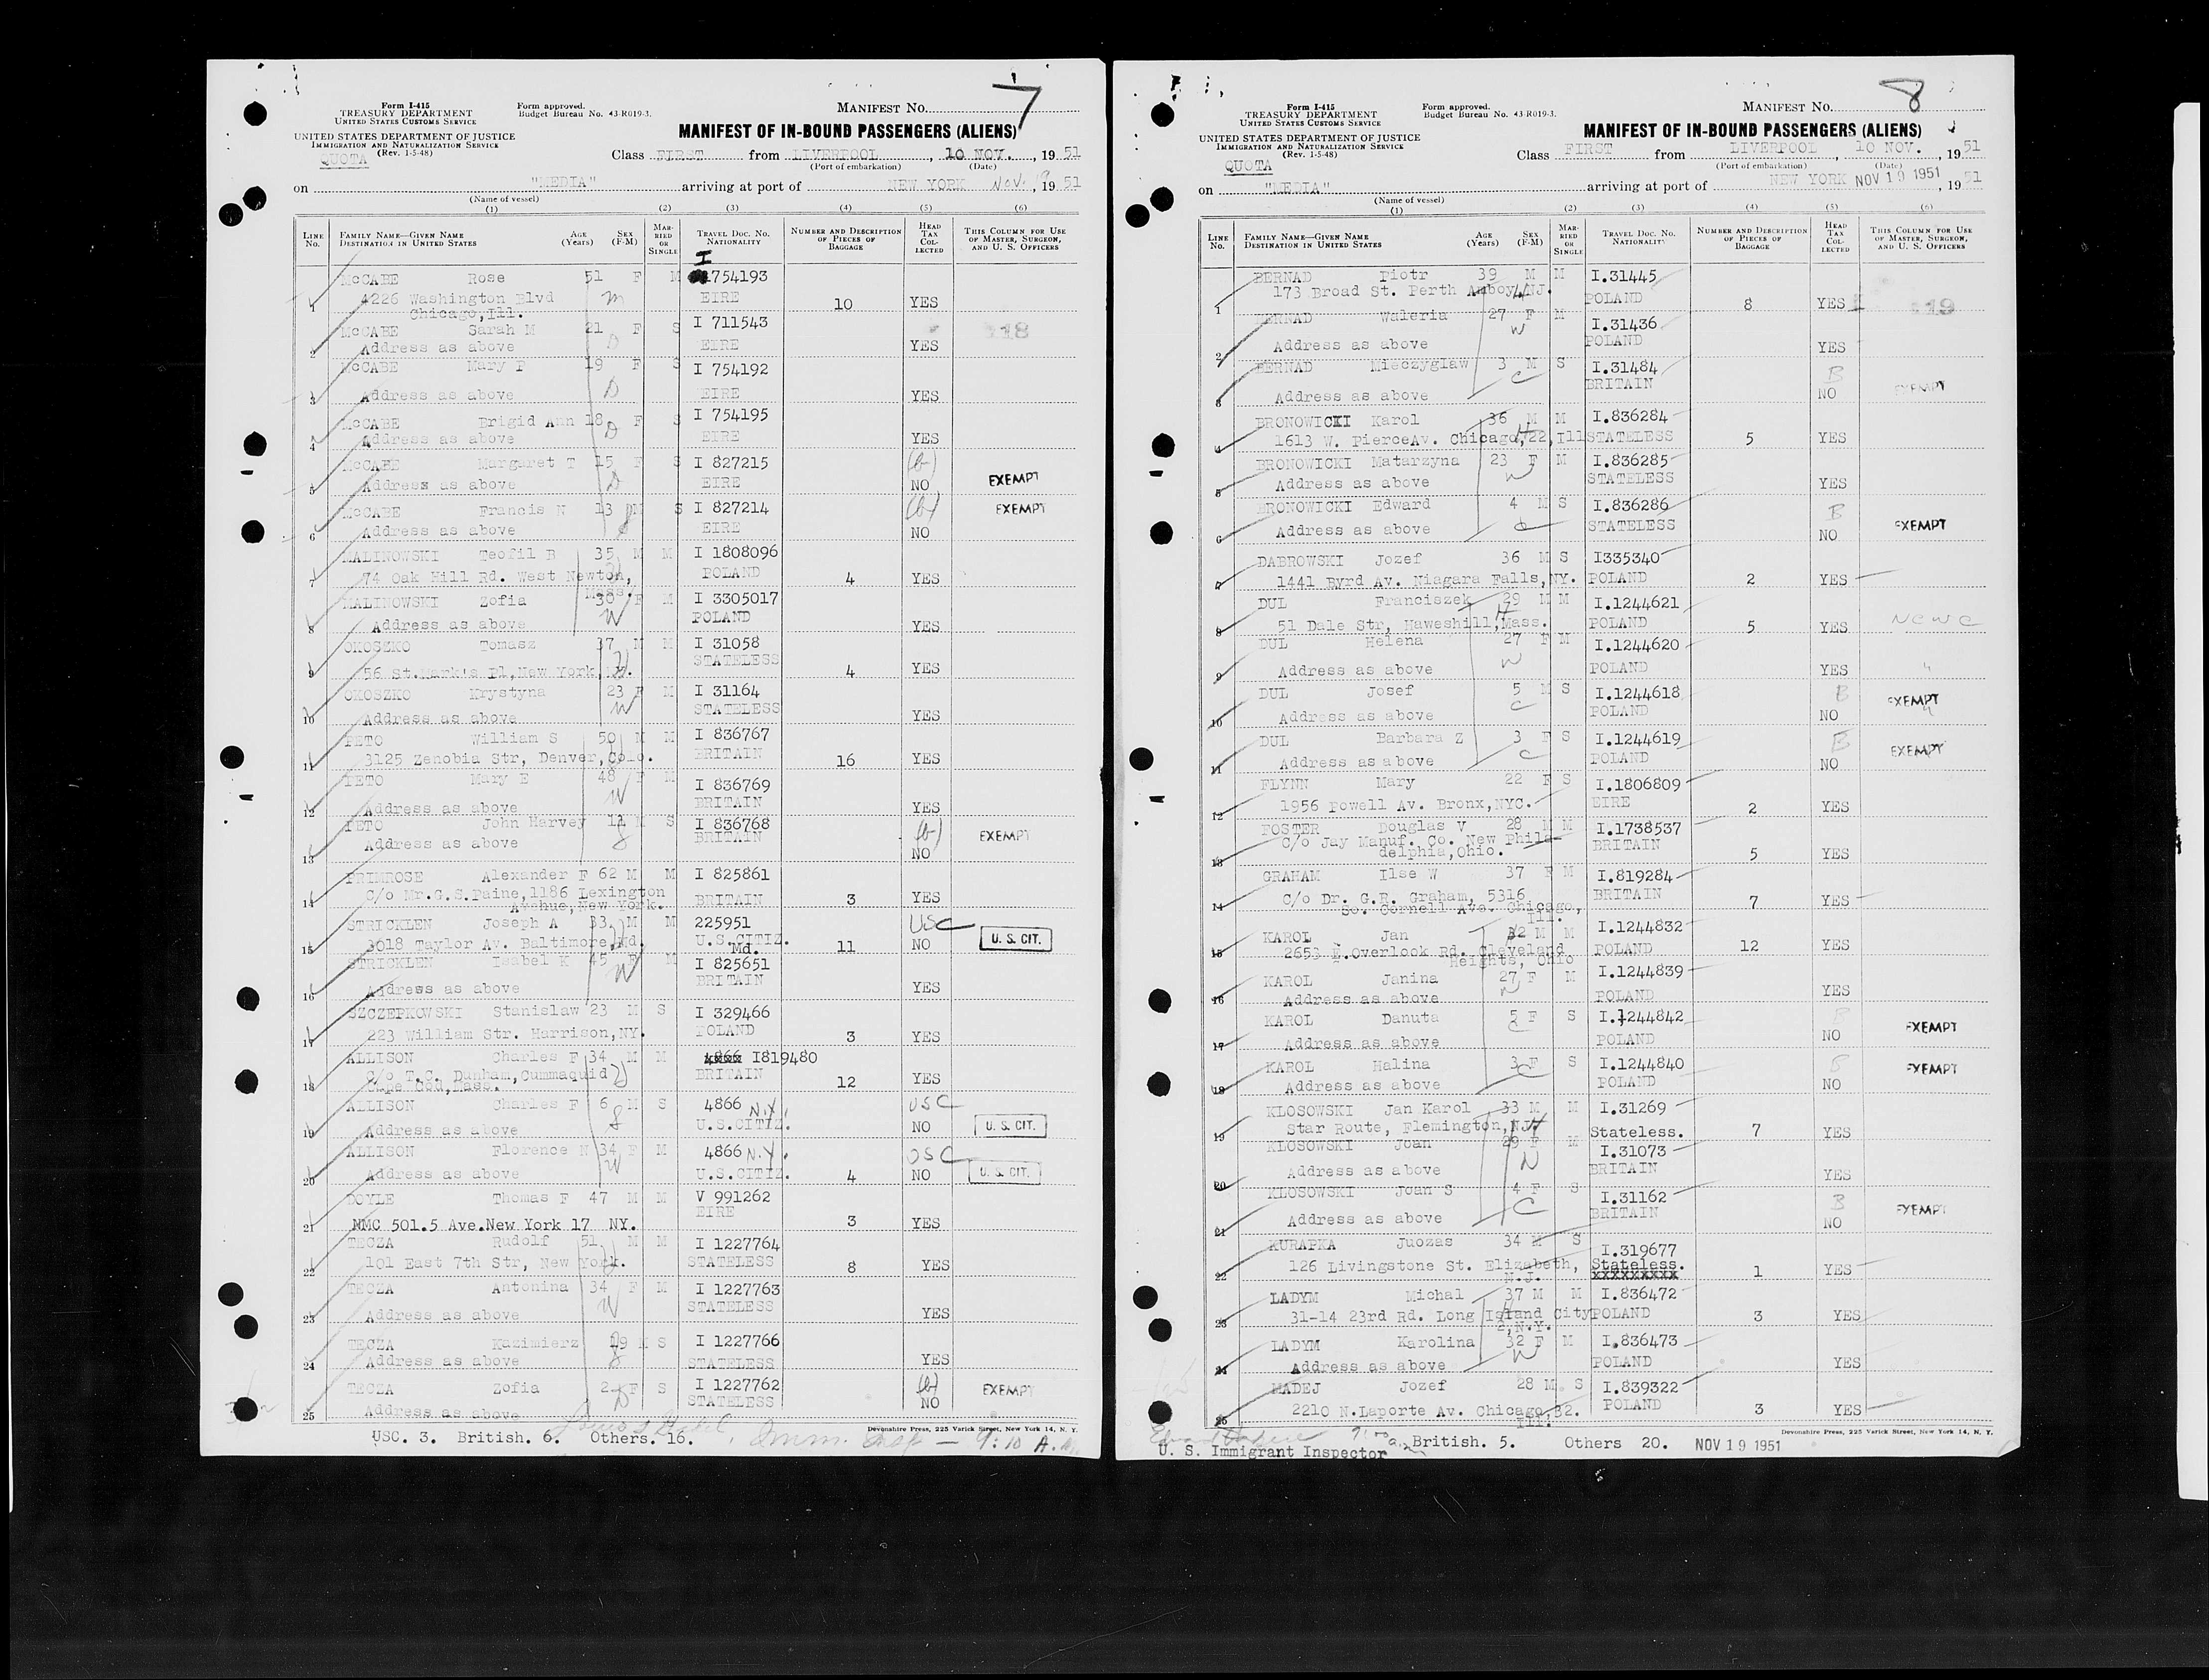 7
Form I-415
TREASURY DEPARTMENT
UNITED STATES CUSTOMS SERVICE
Form approved.
Budget Bureau No. 43-R019-3.
MANIFEST No.
UNITED STATES DEPARTMENT OF JUSTICE
IMMIGRATION AND NATURALIZATION SERVICE
(Rev. 1-5-48)
MANIFEST OF IN-BOUND PASSENGERS (ALIENS)
QUOTA
Class FIRST from LIVERPOOL, 10 NOV., 19 51
(Port of embarkation) (Date)
on "MEDIA" arriving at port of NEW YORK Nov. 19, 19 51
(Name of vessel)
(1) (2) (3) (4) (5) (6)
LINE No. FAMILY NAME—GIVEN NAME DESTINATION IN UNITED STATES AGE (Years) SEX (F-M) MARRIED OR SINGLE TRAVEL DOC. NO. NATIONALITY NUMBER AND DESCRIPTION OF PIECES OF BAGGAGE HEAD TAX COLLECTED THIS COLUMN FOR USE OF MASTER, SURGEON, AND U. S. OFFICERS
McCABE Rose 51 F M I 754193
1 4226 Washington Blvd m EIRE 10 YES
Chicago,Ill.
McCABE Sarah M 21 F S I 711543 18
2 Address as above D EIRE YES
McCABE Mary P 19 F S I 754192
3 Address as above D EIRE YES
McCABE Brigid Ann 18 F S I 754195
4 Address as above D EIRE YES
McCABE Margaret T 15 F S I 827215 (b)
5 Address as above D EIRE NO EXEMPT
McCABE Francis N 13 M S I 827214 (b) EXEMPT
6 Address as above EIRE NO
MALINOWSKI Teofil B 35 M M I 1808096
7 74 Oak Hill Rd. West Newton, POLAND 4 YES
Mass.
MALINOWSKI Zofia 30 F M I 3305017
8 Address as above W POLAND YES
OKOSZKO Tomasz 37 M M I 31058
9 56 St.Mark's Pl,New York, STATELESS 4 YES
OKOSZKO Krystyna 23 F M I 31164
10 Address as above W STATELESS YES
PETO William S 50 M M I 836767
11 3125 Zenobia Str, Denver,Colo. BRITAIN 16 YES
PETO Mary E 48 F M I 836769
12 Address as above W BRITAIN YES
PETO John Harvey M S I 836768 (b) EXEMPT
13 Address as above BRITAIN NO
PRIMROSE Alexander F 62 M M I 825861
14 C/o Mr.G.S.Paine,1186 Lexington BRITAIN 3 YES
Avenue,New York.
STRICKLEN Joseph A 33 M M 225951 USC
15 3018 Taylor Av. Baltimore,Md. U.S.CITIZ. 11 NO U. S. CIT.
Md.
STRICKLEN Isabel K 45 F M I 825651
16 Address as above W BRITAIN YES
SZCZEPKOWSKI Stanislaw 23 M S I 329466
17 223 William Str. Harrison,NY. POLAND 3 YES
ALLISON Charles F 34 M M I819480
18 C/o T.C. Dunham,Cummaquid BRITAIN 12 YES
Cape Cod,Mass.
ALLISON Charles F 6 M S 4866 N.Y. USC
19 Address as above U.S.CITIZ. NO U. S. CIT.
ALLISON Florence N 34 F M 4866 N.Y. USC
20 Address as above W U.S.CITIZ. 4 NO U. S. CIT.
DOYLE Thomas F 47 M M V 991262
21 MMC 501.5 Ave.New York 17 NY. EIRE 3 YES
TECZA Rudolf 51 M M I 1227764
22 101 East 7th Str, New York. STATELESS 8 YES
TECZA Antonina 34 F M I 1227763
23 Address as above W STATELESS YES
TECZA Kazimierz M S I 1227766
24 Address as above STATELESS YES
TECZA Zofia 2 F S I 1227762 (b) EXEMPT
25 Address as above D STATELESS NO
Devonshire Press, 225 Varick Street, New York 14, N. Y.
USC. 3. British. 6. Others. 16. Imm. Insp — 9:10 A.M.
8
Form I-415
TREASURY DEPARTMENT
UNITED STATES CUSTOMS SERVICE
Form approved.
Budget Bureau No. 43-R019-3.
MANIFEST No.
UNITED STATES DEPARTMENT OF JUSTICE
IMMIGRATION AND NATURALIZATION SERVICE
(Rev. 1-5-48)
MANIFEST OF IN-BOUND PASSENGERS (ALIENS)
QUOTA
Class FIRST from LIVERPOOL, 10 NOV., 19 51
(Port of embarkation) (Date)
on "MEDIA" arriving at port of NEW YORK NOV 19 1951, 19 51
(Name of vessel)
(1) (2) (3) (4) (5) (6)
LINE No. FAMILY NAME—GIVEN NAME DESTINATION IN UNITED STATES AGE (Years) SEX (F-M) MARRIED OR SINGLE TRAVEL DOC. NO. NATIONALITY NUMBER AND DESCRIPTION OF PIECES OF BAGGAGE HEAD TAX COLLECTED THIS COLUMN FOR USE OF MASTER, SURGEON, AND U. S. OFFICERS
BERNAD Piotr 39 M M I.31445
1 173 Broad St. Perth Amboy,NJ. POLAND 8 YES 19
BERNAD Waleria 27 F M I.31436
2 Address as above W POLAND YES
BERNAD Mieczyglaw 3 M S I.31484 B
3 Address as above C BRITAIN NO EXEMPT
BRONOWICKI Karol 36 M M I.836284
4 1613 W. PierceAv. Chicago,22,Ill STATELESS 5 YES
BRONOWICKI Matarzyna 23 F M I.836285
5 Address as above W STATELESS YES
BRONOWICKI Edward 4 M S I.836286 B
6 Address as above C STATELESS NO EXEMPT
DABROWSKI Jozef 36 M S I335340
7 1441 Byrd Av. Niagara Falls,NY. POLAND 2 YES
DUL Franciszek 29 M M I.1244621
8 51 Dale Str, Haweshill,Mass. POLAND 5 YES NCWC
DUL Helena 27 F M I.1244620
9 Address as above W POLAND YES "
DUL Josef 5 M S I.1244618 B EXEMPT
10 Address as above C POLAND NO "
DUL Barbara Z 3 F S I.1244619 B EXEMPT
11 Address as above C POLAND NO
FLYNN Mary 22 F S I.1806809
12 1956 Powell Av. Bronx,NYC. EIRE 2 YES
FOSTER Douglas V 28 M M I.1738537
13 C/o Jay Manuf. Co. New Phila- BRITAIN 5 YES
delphia,Ohio.
GRAHAM Ilse W 37 F M I.819284
14 C/o Dr. G.R. Graham, 5316 BRITAIN 7 YES
So. Cornell Ave. Chicago,
Ill.
KAROL Jan 32 M M I.1244832
15 2653 E.Overlook Rd. Cleveland POLAND 12 YES
Heights, Ohio
KAROL Janina 27 F M I.1244839
16 Address as above W POLAND YES
KAROL Danuta 5 F S I.1244842 B
17 Address as above C POLAND NO EXEMPT
KAROL Halina 3 F S I.1244840 B EXEMPT
18 Address as above C POLAND NO
KLOSOWSKI Jan Karol 33 M M I.31269
19 Star Route, Flemington,NJ. Stateless. 7 YES
KLOSOWSKI Joan 29 F M I.31073
20 Address as above W BRITAIN YES
KLOSOWSKI Joan S 4 F S I.31162 B
21 Address as above C BRITAIN NO EXEMPT
KURAPKA Juozas 34 M S I.319677
22 126 Livingstone St. Elizabeth, Stateless. 1 YES
N.J. xxxxxxxxx
LADYM Michal 37 M M I.836472
23 31-14 23rd Rd. Long Island City POLAND 3 YES
2,N.Y.
LADYM Karolina 32 F M I.836473
24 Address as above W POLAND YES
MADEJ Jozef 28 M. S I.839322
25 2210 N.Laporte Av. Chicago,32. POLAND 3 YES
Ill.
Devonshire Press, 225 Varick Street, New York 14, N. Y.
British. 5. Others 20. NOV 19 1951
U. S. Immigrant Inspector